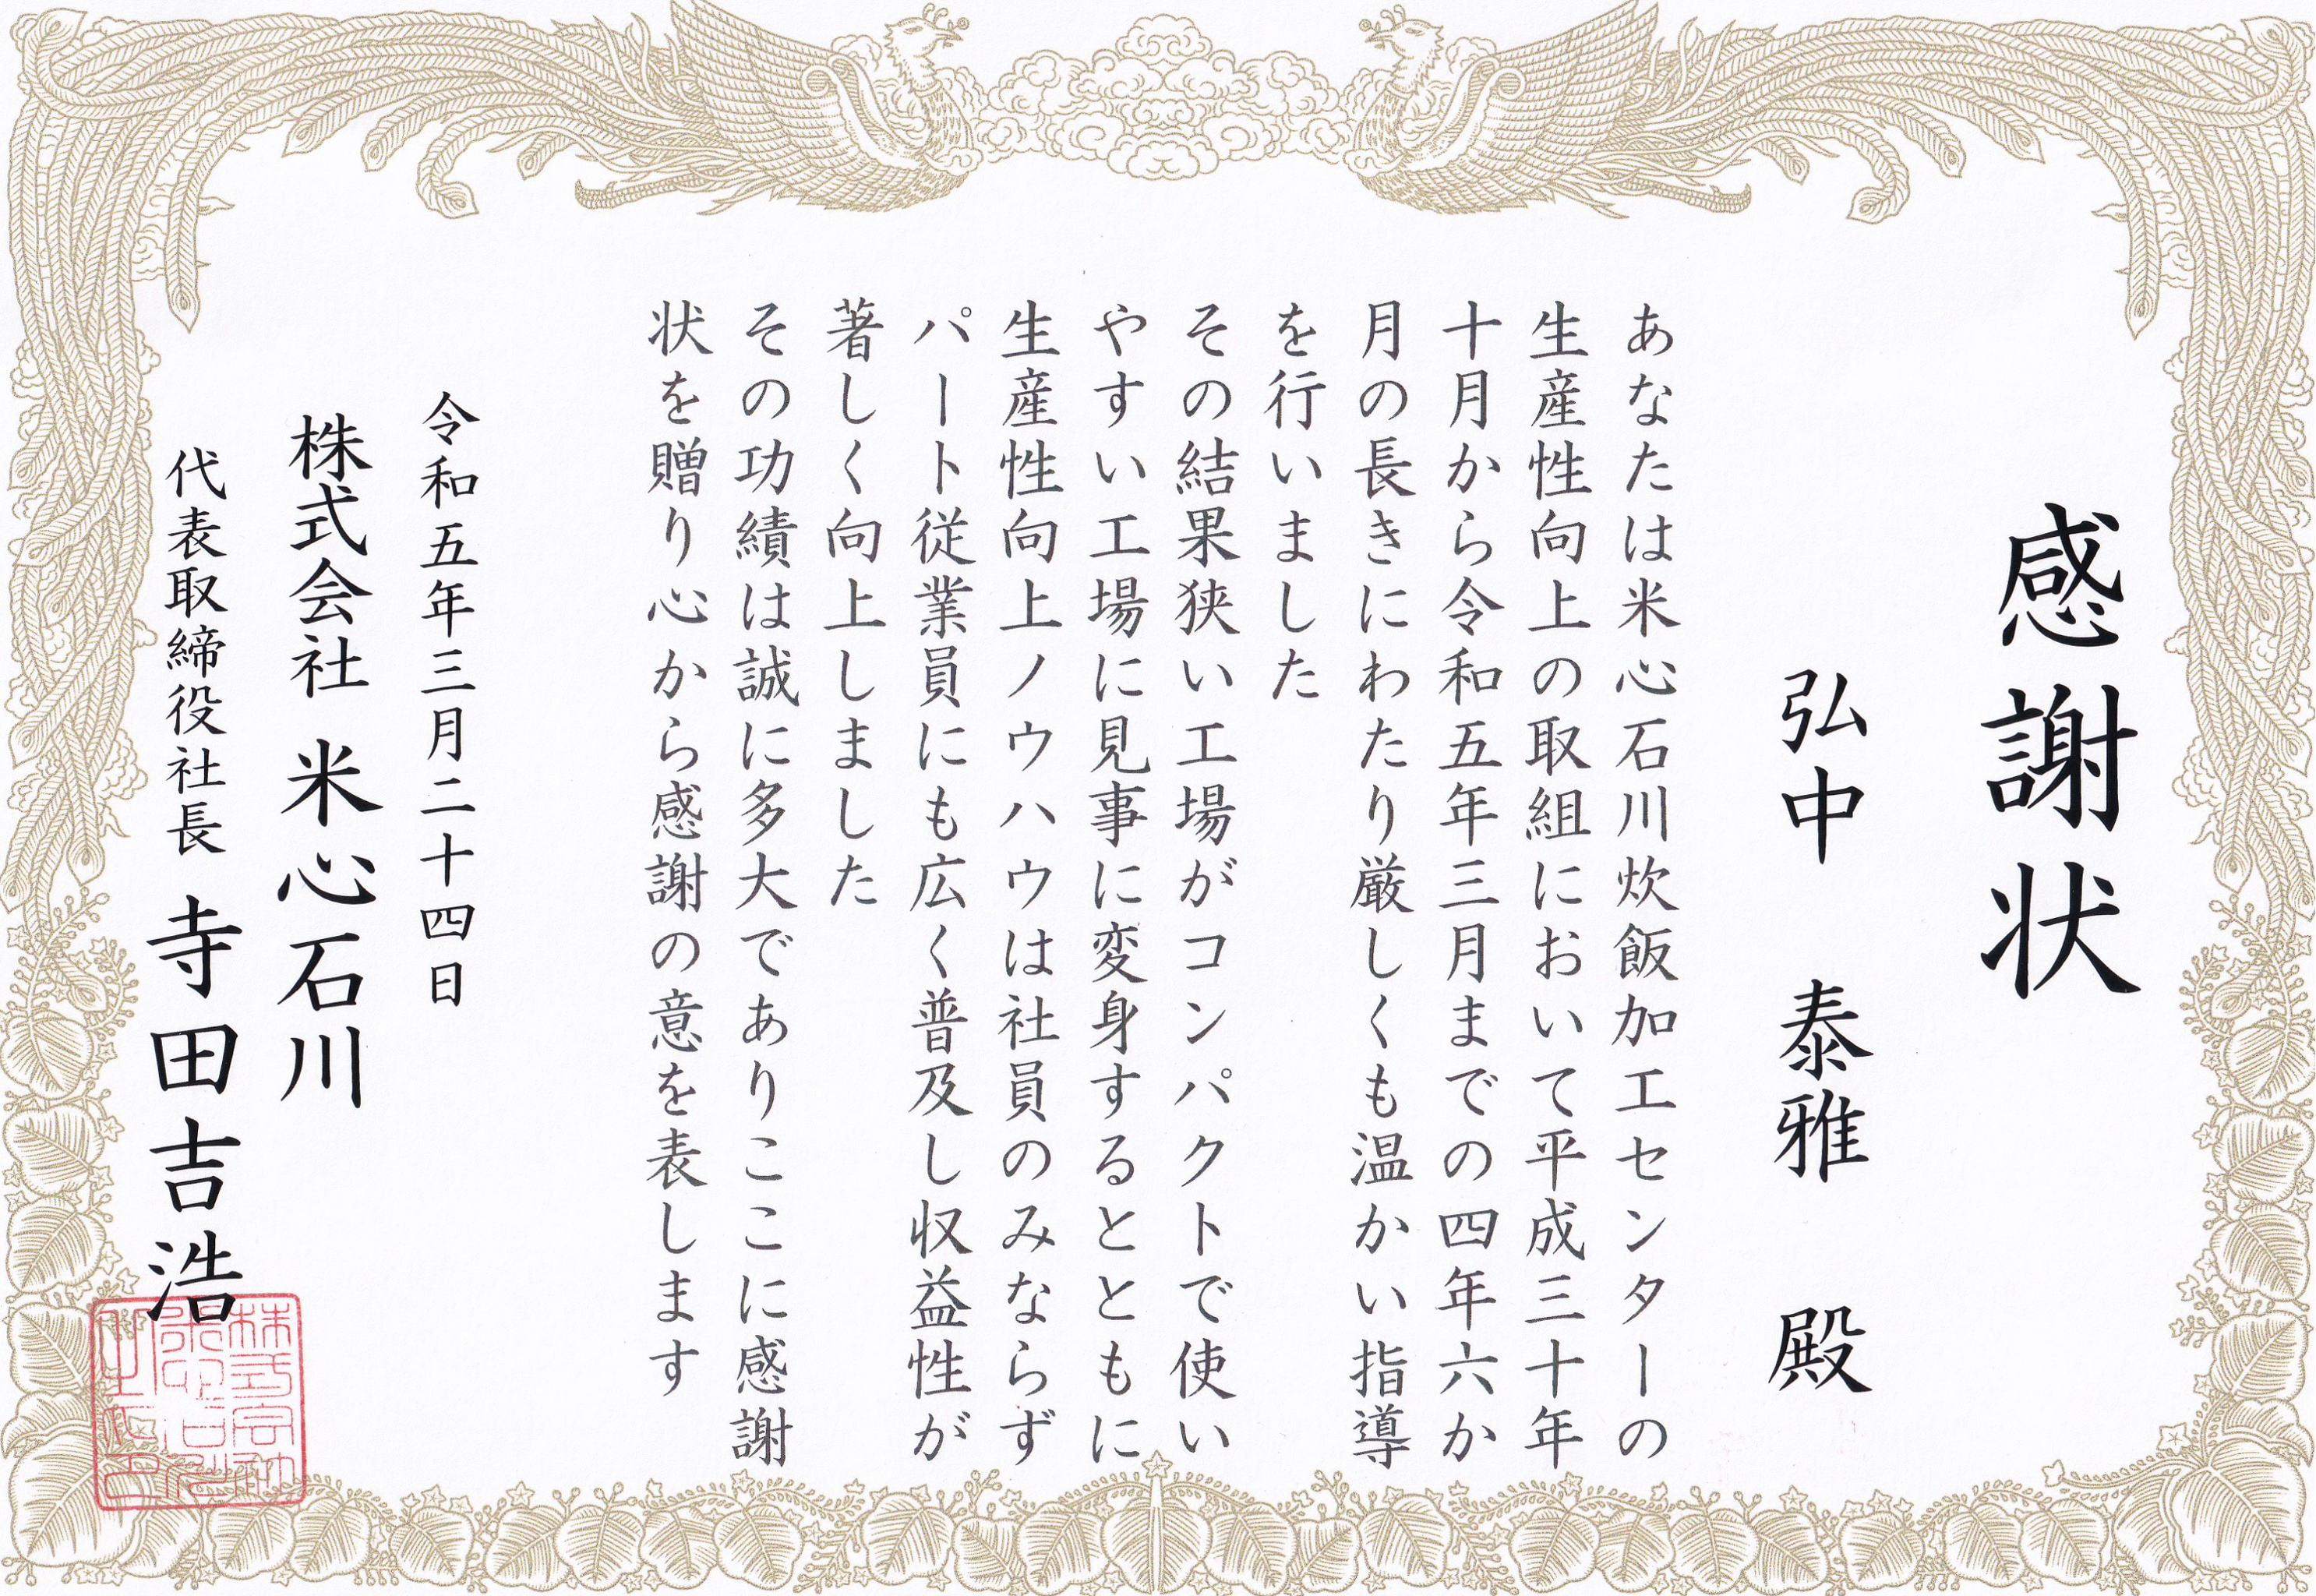 感謝状
弘中 泰雅 殿
あなたは米心石川炊飯加工センターの
生産性向上の取組において平成三十年
十月から令和五年三月までの四年六か
月の長きにわたり厳しくも温かい指導
を行いました
その結果狭い工場がコンパクトで使い
やすい工場に見事に変身するとともに
生産性向上ノウハウは社員のみならず
パート従業員にも広く普及し収益性が
著しく向上しました
その功績は誠に多大でありここに感謝
状を贈り心から感謝の意を表します
令和五年三月二十四日
株式会社 米心石川
代表取締役社長 寺田吉浩